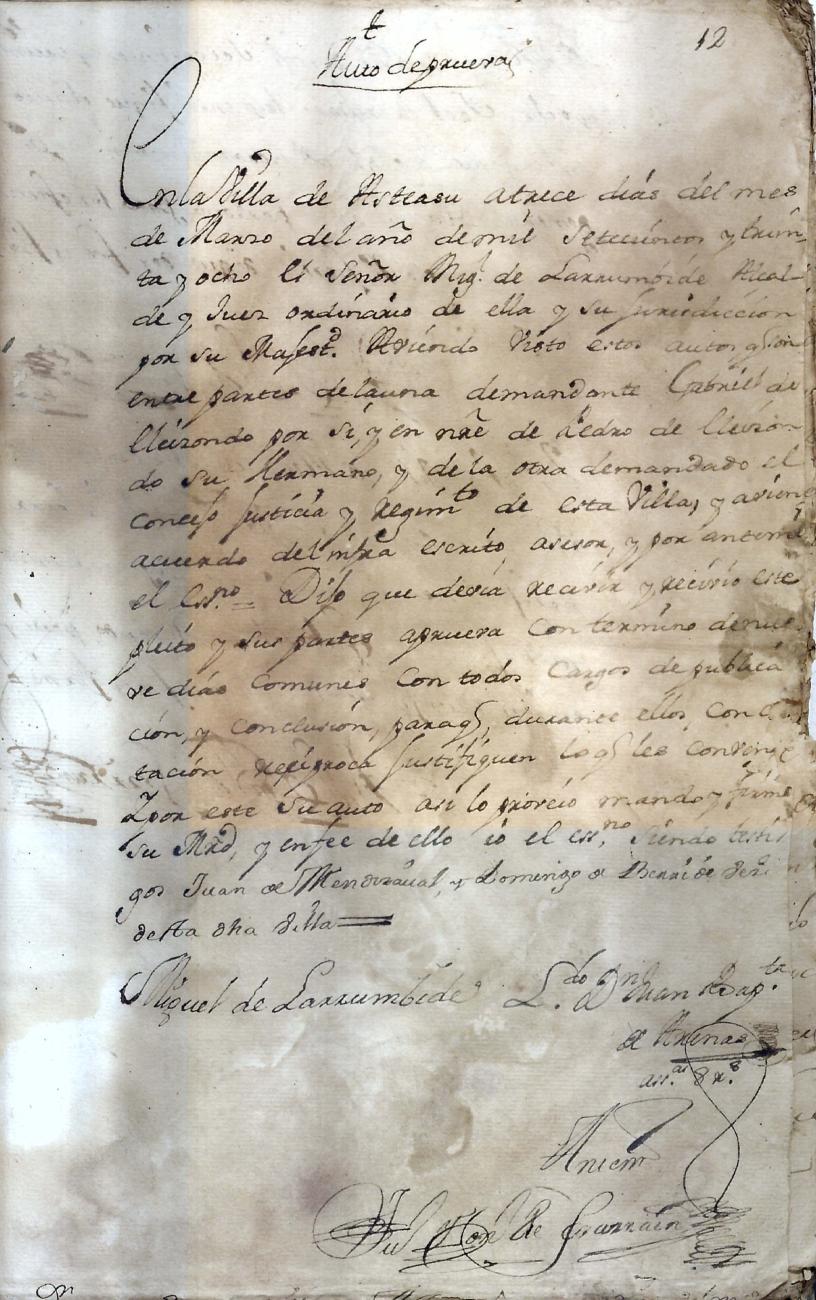 t
12
Auto de prueva
En la Villa de Asteasu a trece dias del mes
de Marzo del año de mil setecientos y trein-
ta y ocho el Señor Mig.l de Larrumbide Alcal-
de y Juez ordinario de ella y su Jurisdiccion
por su Magest.d Aviendo visto estos autos q son
entre partes de la una demandante Gabriel de
Lleizondo por si, y en nre de Pedro de Lleizon-
do su Hermano, y de la otra demandado el
Concejo Justicia y Regim.to de esta Villa, y
acuerdo del infra escrito asesor, y por
el Ess.no = Dijo que devia recivir y recivio este
pleito y sus partes aprueva con termino de nue-
ve dias comunes con todos cargos de publica
cion, y conclusion, para q durante ellos, con
tacion reciproca justifiquen lo q les
Y por este su auto asi lo proveio mando y firmo
su Mrd, y en fee de ello io el ess.no siendo testi
gos Juan de Mendizaval, y Domingo de
desta dha Villa
Miguel de Larrumbide L.do Dn Juan Bap.ta
de Arenas
Antemi